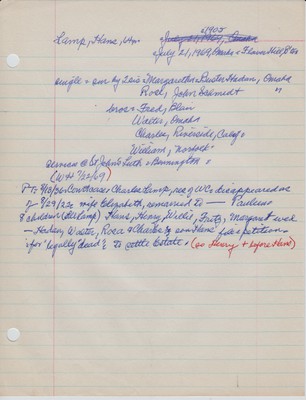 Kamp, Hans, Wm.
1905
July 21, 1969, Omaha = Flower Hill, Blair
single = sur by 2 sis = Margarethe = Buster Hadan, Omaha
Rose, John Schmidt "
bros = Fred, Blair
Walter, Omaha
Charley, Riverside, Calif
William, Norfolk
services @ St John's Luth = Bennington
(WH 7/22/69)
Charles Kamp, res of WC, disappeared
9/29/22 wife Elizabeth, remarried to — Paulsen
children (all Kamp) Hans, Henry, Willie, Fritz, Margaret wed
— Hadan, Walter, Rosa & Charles & son Hans files petition
for "legally dead" to settle Estate. (see Henry & before Hans)